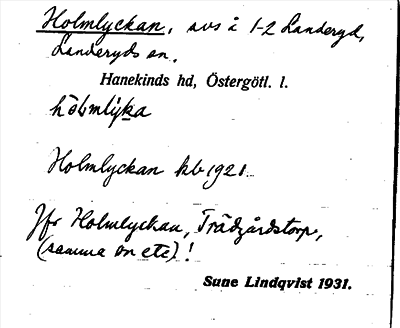 Holmlyckan, avs å 1-2 Landeryd,
Landeryds sn.
Hanekinds hd, Östergötl. l.
Holmlyckan kb 1921
Jfr Holmlyckan, Trädgårdstorp,
(samma sn etc)!
Sune Lindqvist 1931.